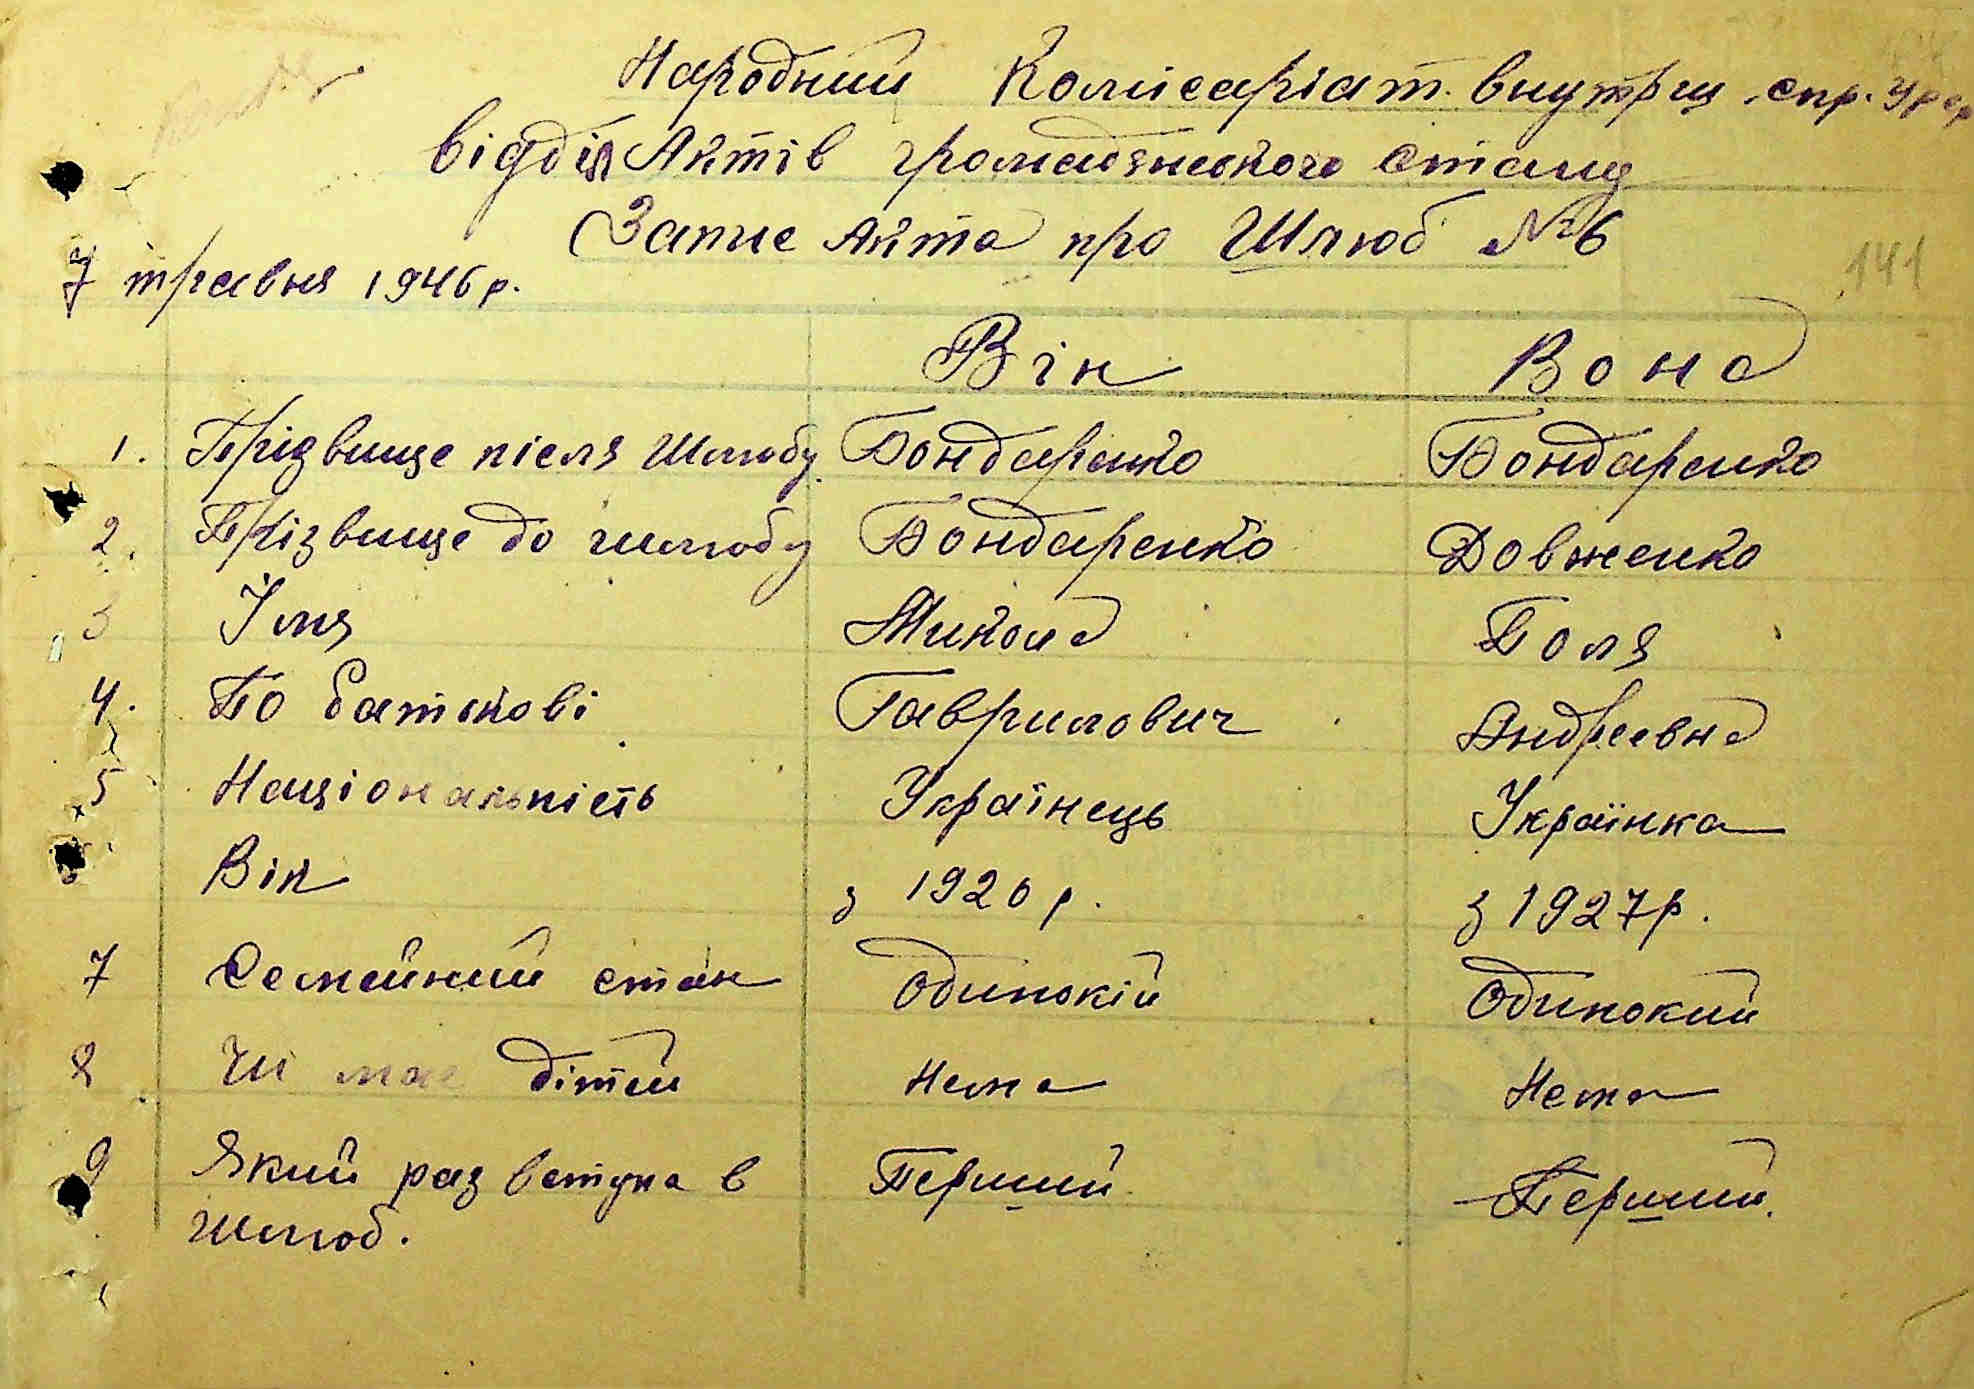 Народний Комісаріат внутрщ. спр. УРСР
Відділ Актів громадянского стану
Запис Акта про Шлюб №6
7 травня 1946 р.
141
Він Вона
1. Прізвище після Шлюбу. Бондаренко Бондаренко
2. Прізвище до шлюбу Бондаренко Довженко
3 Імя Микола Поля
4. По батькові Гаврилович Андреевна
5 Національність Українець Українка
Вік з 1920 р. з 1927 р.
7 Семейний стан Одинокій Одинокий
8 Чи має дітей Нема Нема
9 Який раз вступа в Перший Перший.
Шлюб.